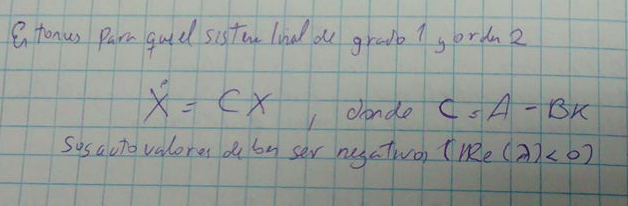 Entonces para que el sistema linal de grado 1 y orden 2
Ẋ = CX , donde C = A - BK
Sus autovalores deben ser negativos (Re(λ)<0)